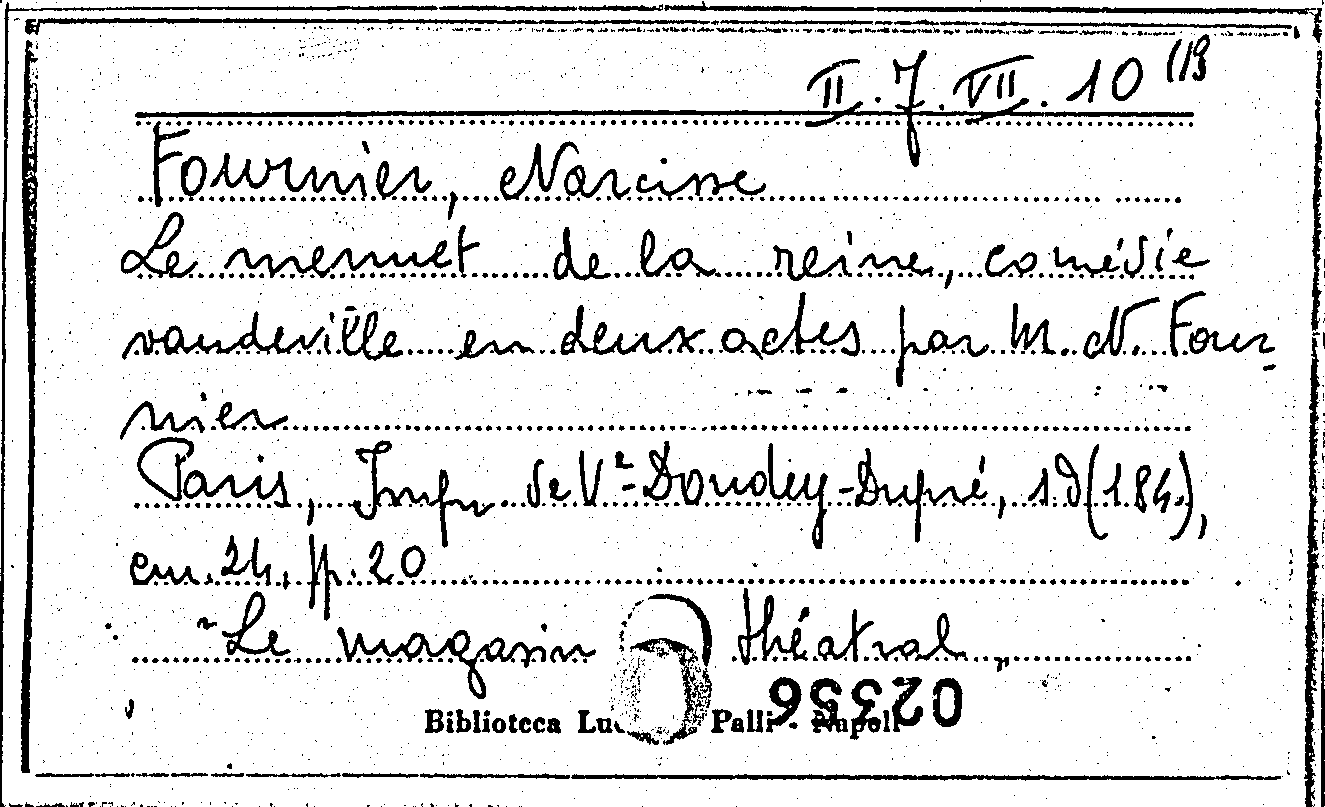 II. 7. VII. 10 (19
Fournier, Narcisse
Le menuet de la reine, comédie
vaudeville en deux actes par M. N. Four-
nier
Paris, Impr. de Vᵉ Dondey-Dupré, s.d (184.),
cm. 24, pp. 20
"Le magasin théatral"
Biblioteca Palli - Napoli
02356